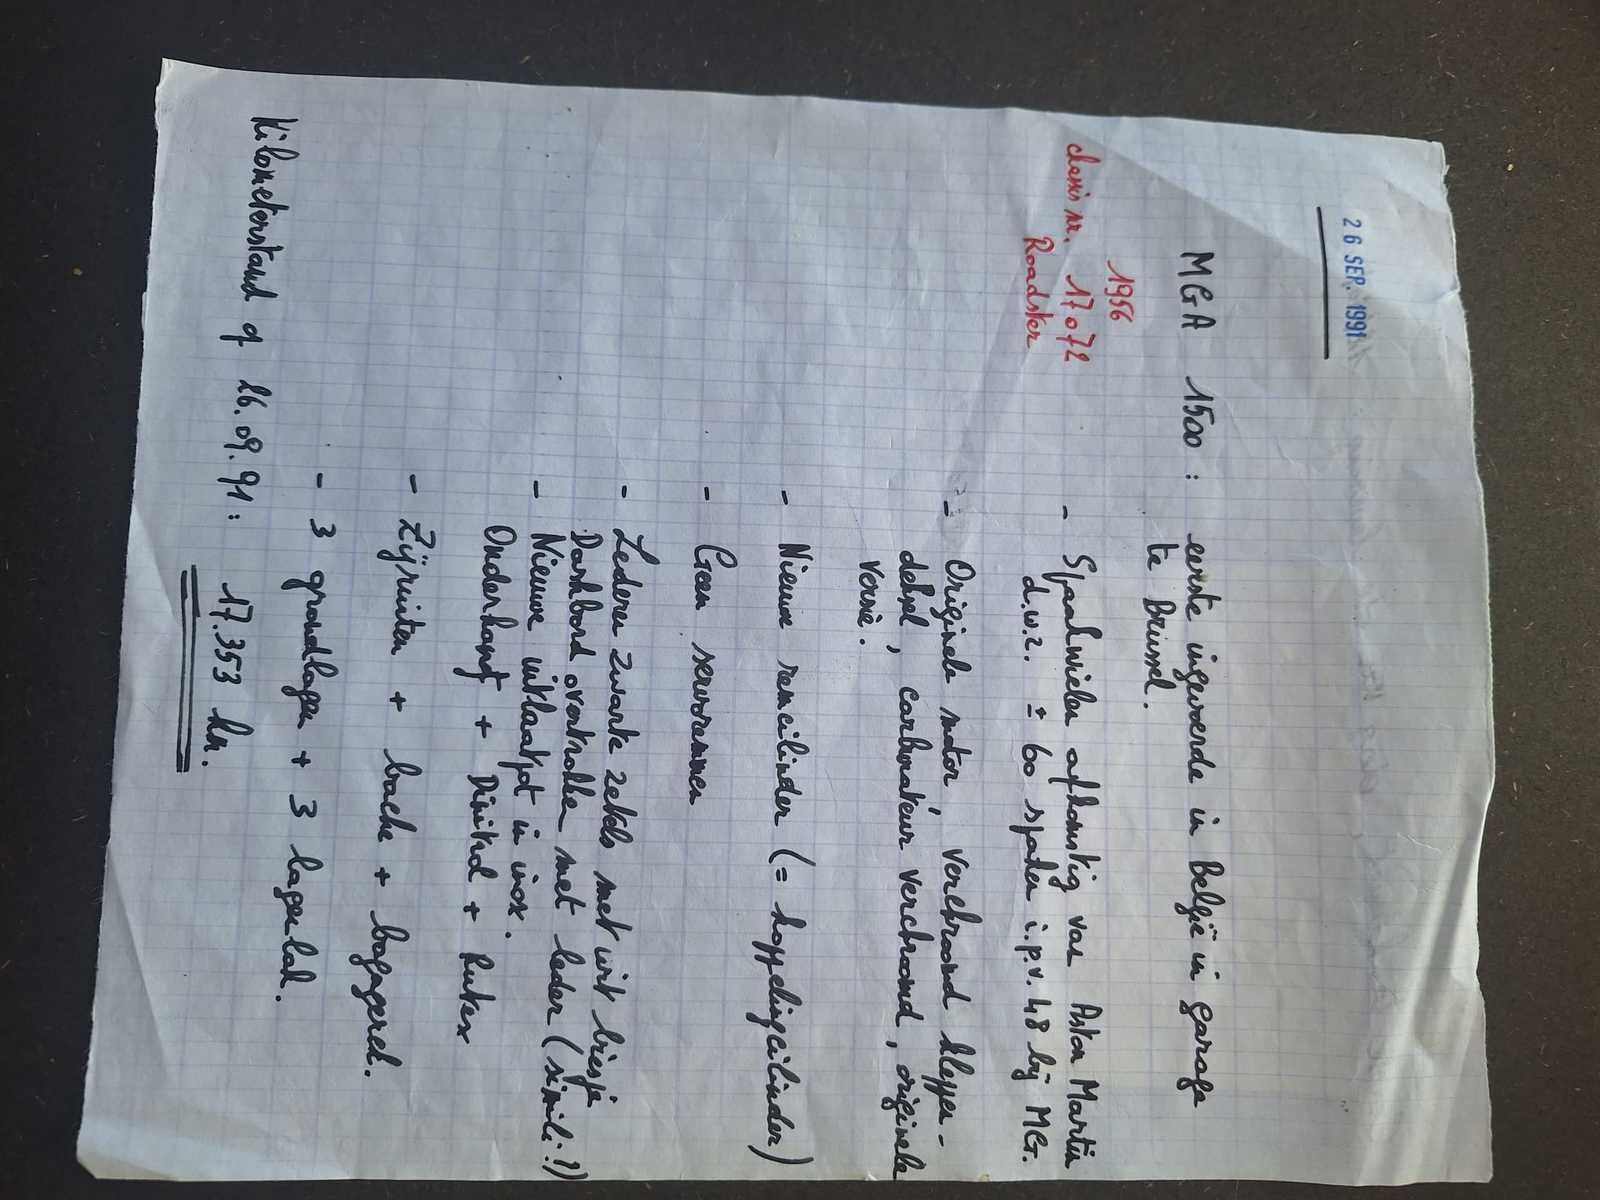 26 SEP. 1991
MGA 1500 : eerste ingevoerde in België in garage
te Brussel.
1956
chassis nr. 17072
Roadster
- Spaakwielen afkomstig van Aston Martin
d.w.z. ± 60 spaken i.p.v. 48 bij MG.
- Originele motor, verchroomd kleppen-
deksel, carburateur verchroomd, originele
versie.
- Nieuwe remcilinder (= koppelingcilinder)
- Geen servoremmen
- Lederen zwarte zetels met wit biesje
Dashbord overtrokken met leder (simili?)
- Nieuwe uitlaatpot in inox.
Onderhoud + Dinitrol + Rutex
- Zijruiten + bache + bagagerek.
- 3 grondlagen + 3 lagen lak.
Kilometerstand op 26.09.91: 17.353 km.